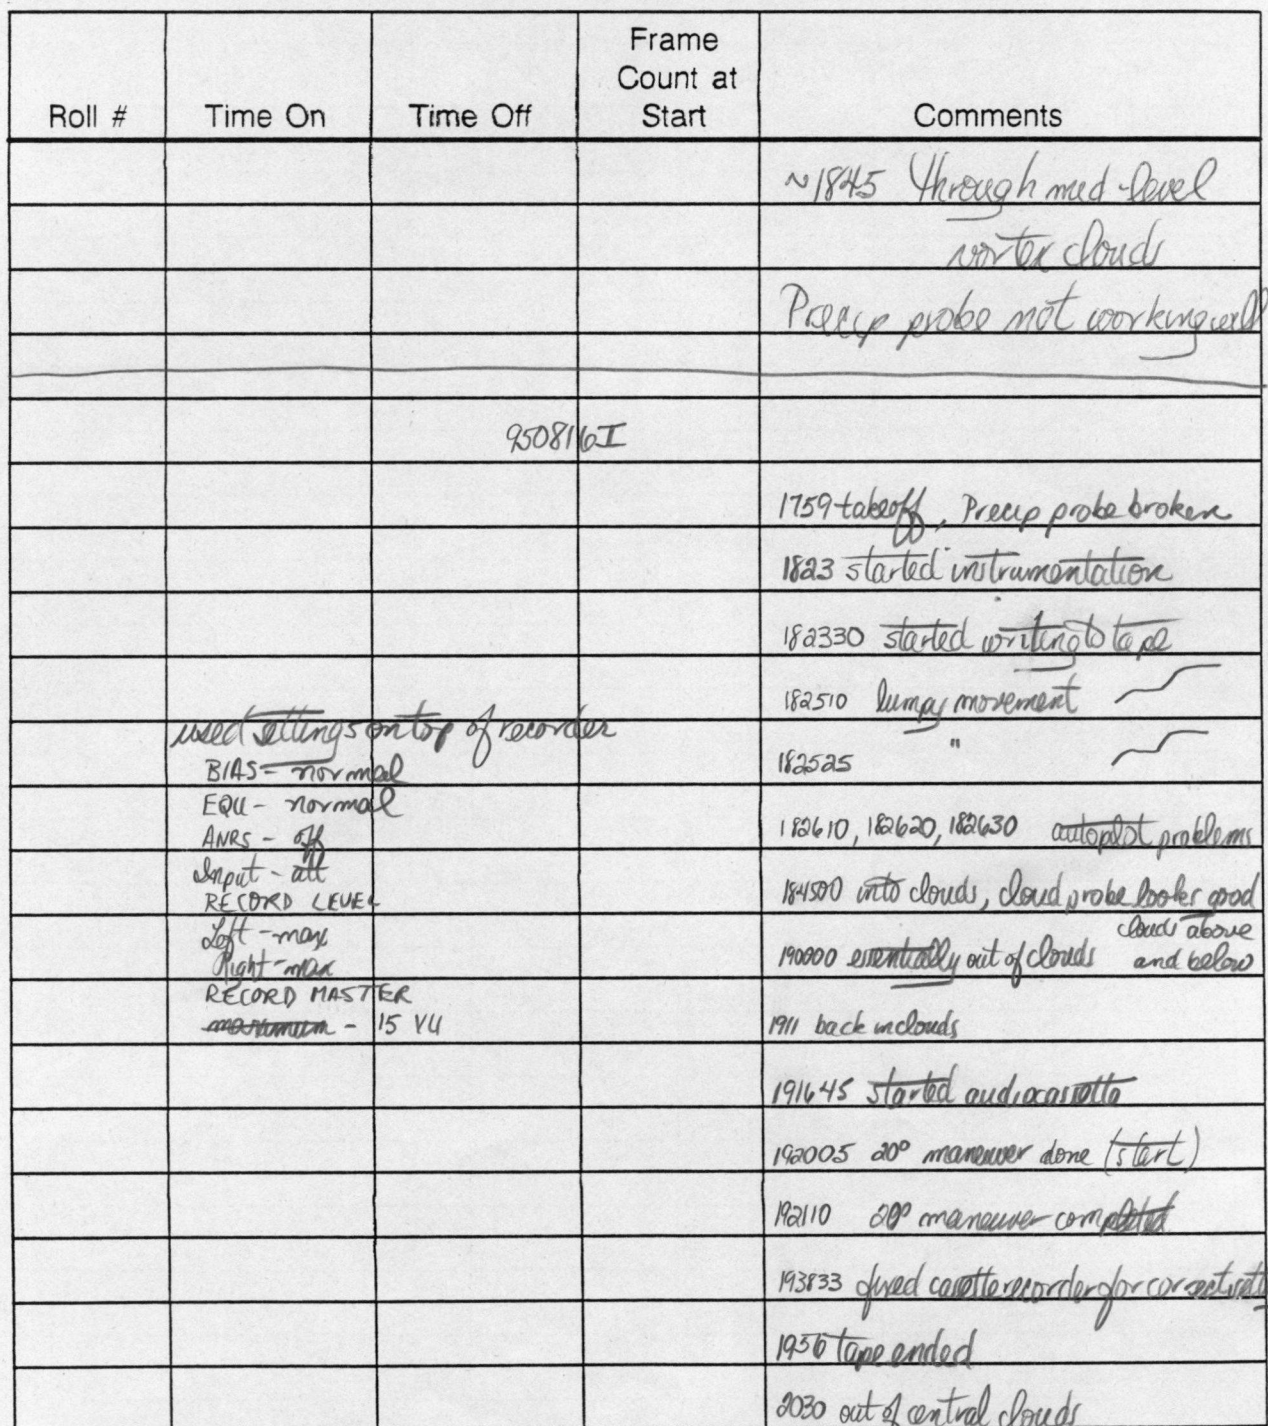 Frame
Count at
Roll # Time On Time Off Start Comments
~1845 through mid-level
vortex clouds
Precip probe not working well
950816I
1759 takeoff, Precip probe broken
1823 started instrumentation
182330 started writing to tape
182510 lumpy movement
used settings on top of recorder
182525 "
BIAS - normal
EQU - normal
182610, 182620, 182630 autopilot problems
ANRS - off
Input - att
184500 into clouds, cloud probe looks good
RECORD LEVEL
Left - max
clouds above
190000 essentially out of clouds and below
Right - max
RECORD MASTER
maximum - 15 VU
1911 back in clouds
191645 started audiocassette
192005 20° maneuver done (start)
192110 20° maneuver completed
193833 fixed casette recorder for correct
1956 tape ended
2030 out of central clouds